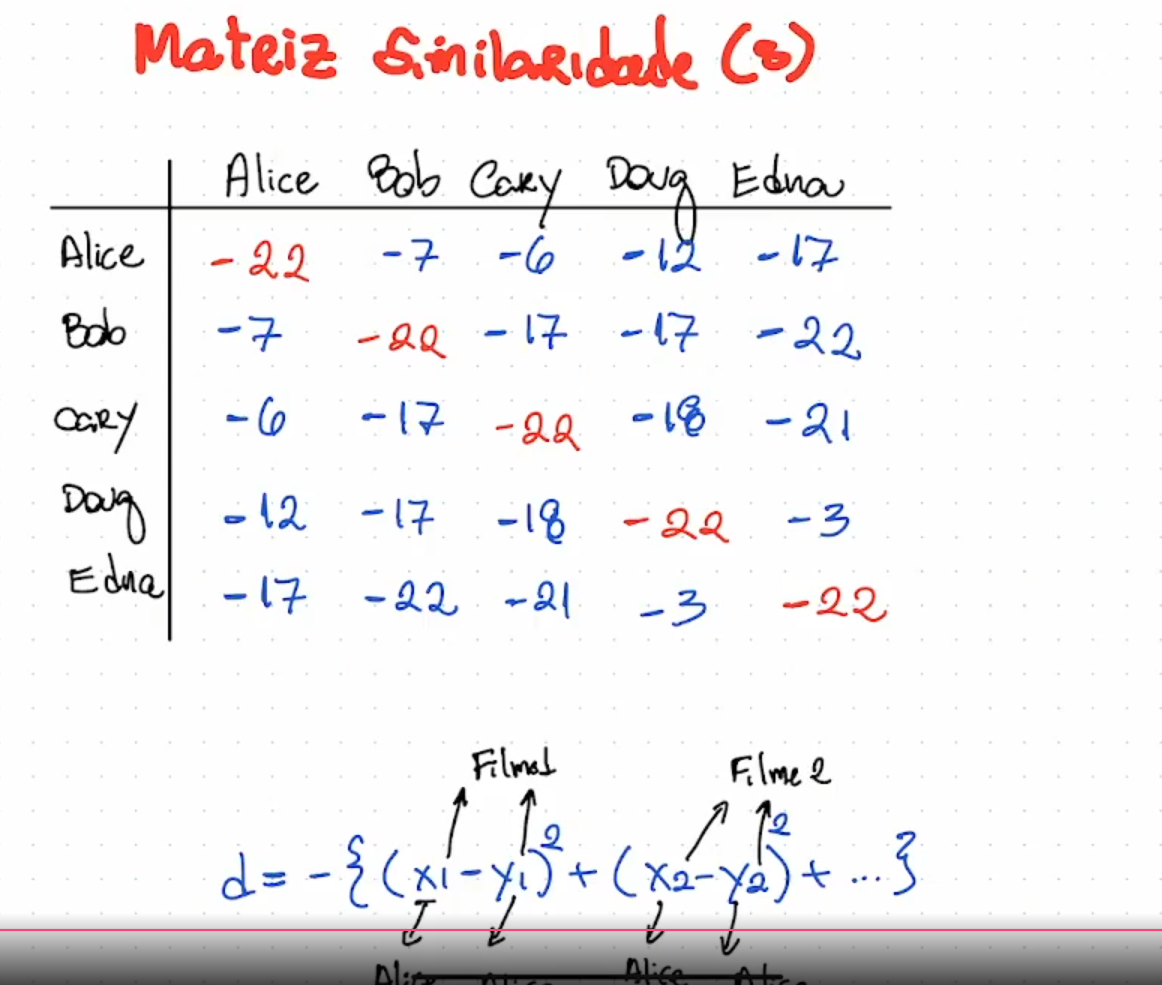 Matriz Similaridade (s)
Alice Bob Cary Doug Edna
Alice -22 -7 -6 -12 -17
Bob -7 -22 -17 -17 -22
Cary -6 -17 -22 -18 -21
Doug -12 -17 -18 -22 -3
Edna -17 -22 -21 -3 -22
Filme1 Filme 2
d = -{(x1-y1)²+(x2-y2)²+...}
Alice Alice Alice Alice